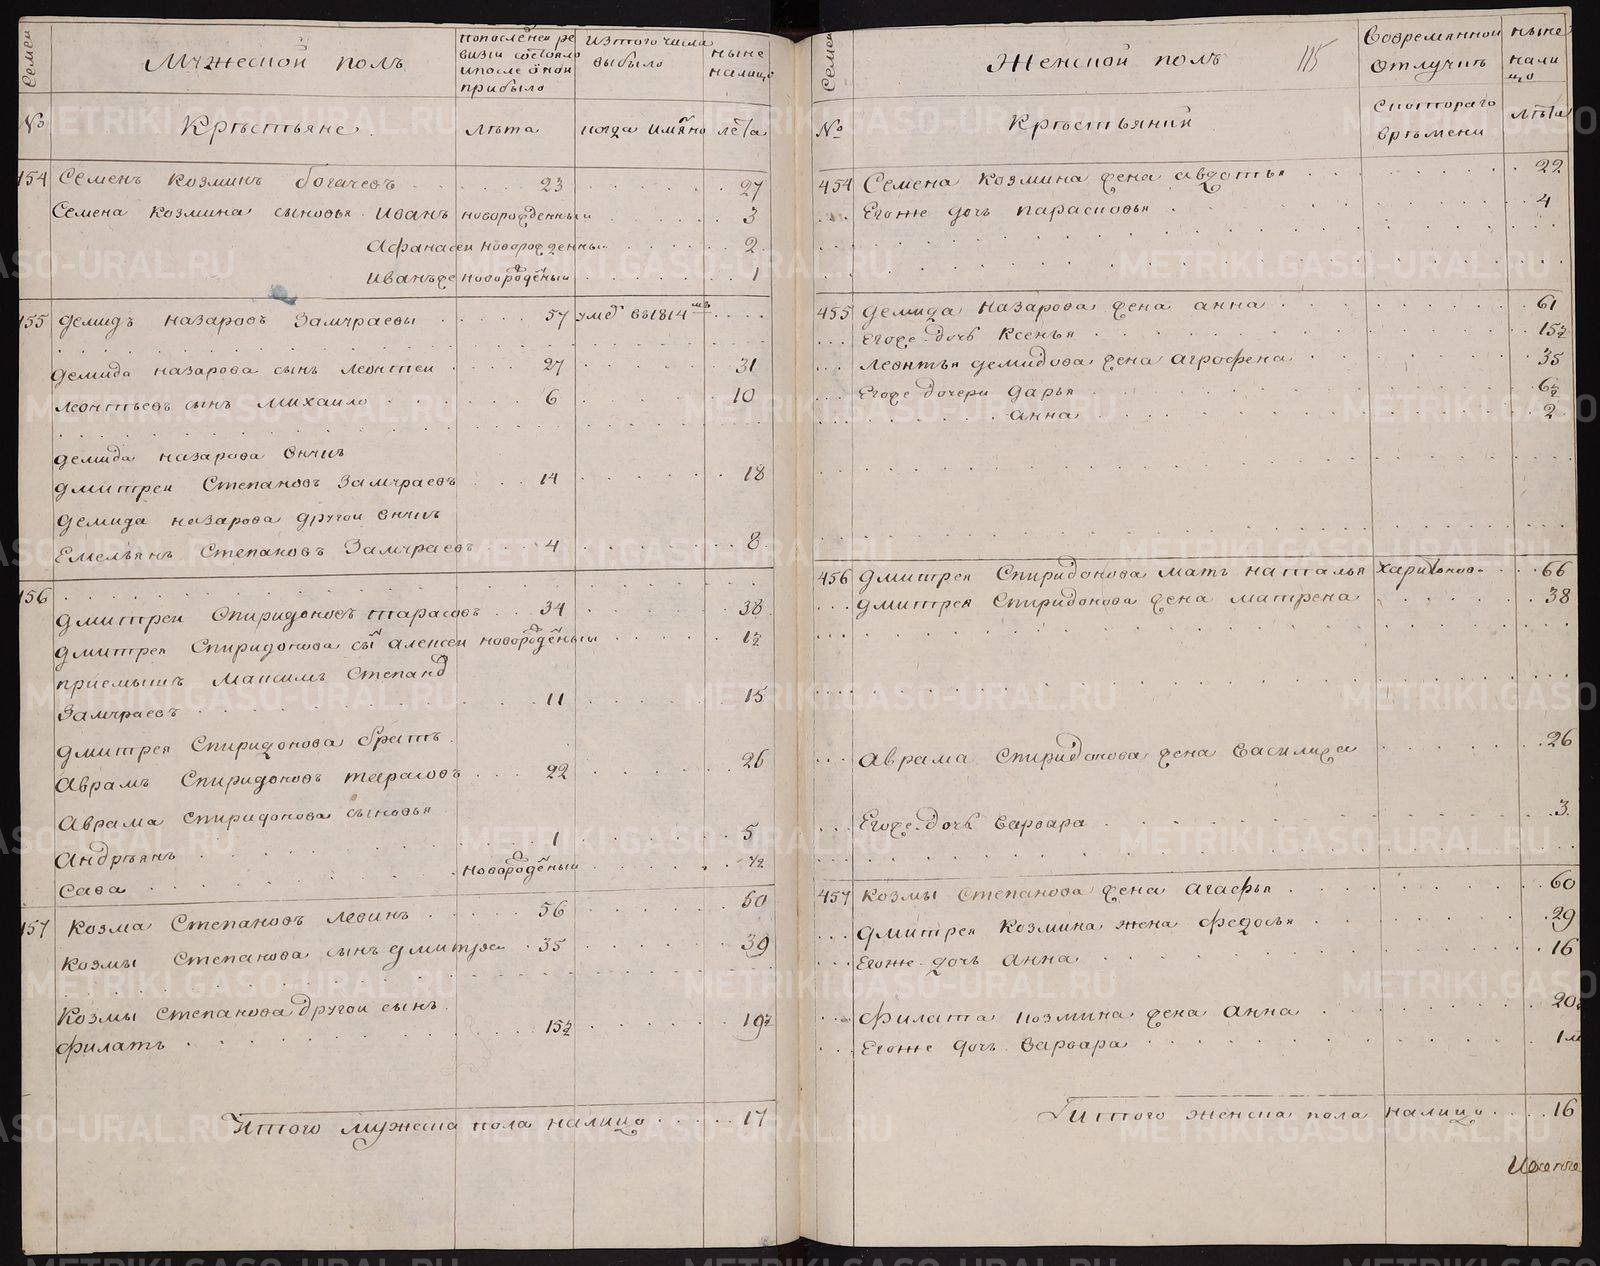 Семеи
Мужеской полъ
попоследнеи ре
визи состояло
ипосле оной
прибыло
изтого числа
выбыло
ныне
налицо
№
Крѣстьяне.
лѣта
когда имянно
лета
454 Семенъ козминъ богачевъ 23 27
Семена козмина сыновья Иванъ новорожденный 3
Афанасеи новорожденны 2
Иванъже новорожденый 1
455 демидъ назаровъ Замураевы 57 умеръ въ1814мъ
демида назарова сынъ леонтеи 27 31
леонтьевъ сынъ михаило 6 10
демида назарова внукъ
дмитреи Степановъ Замураевъ 14 18
демида назарова другои внукъ
Емельянъ Степановъ Замураевъ 4 8
456
дмитреи Спиридоновъ тарасовъ 34 38
дмитрея Спиридонова сынъ алексеи новорожденыи 1½
приемышъ Максимъ Степанов
Замураевъ 11 15
дмитрея Спиридонова братъ
Аврамъ Спиридоновъ тарасовъ 22 26
Аврама Спиридонова сыновья
Андрѣянъ 1 5
Сава новорожденыи ½
457 Козма Степановъ левинъ 56 60
Козмы Степанова сынъ дмитреи 35 39
Козмы Степанова другои сынъ
филатъ 15½ 19½
Итого мужеска пола налицо 17
Семеи
Женской полъ
115
вовремянной
отлучкѣ
ныне
нали
цо
№
Крѣстьянки
скотораго
врѣмени
лѣта
454 Семена Козмина жена авдотья 22
Егоже дочь парасковья 4
455 демида назарова жена анна 61
Егоже дочь Ксенья 15½
леонтья демидова жена агрофена 35
Егоже дочери дарья 6½
анна 2
456 дмитрея Спиридонова мать наталья харитонов 66
дмитрея Спиридонова жена матрена 38
Аврама Спиридонова жена василиса 26
Егоже дочь варвара 3
457 козмы Степанова жена агафья 60
дмитрея Козмина жена федосья 29
Егоже дочь анна 16
филата козмина жена анна 20
Егоже дочь варвара 1м
Итого женска пола налицо 16
METRIKI.GASO-URAL.RU